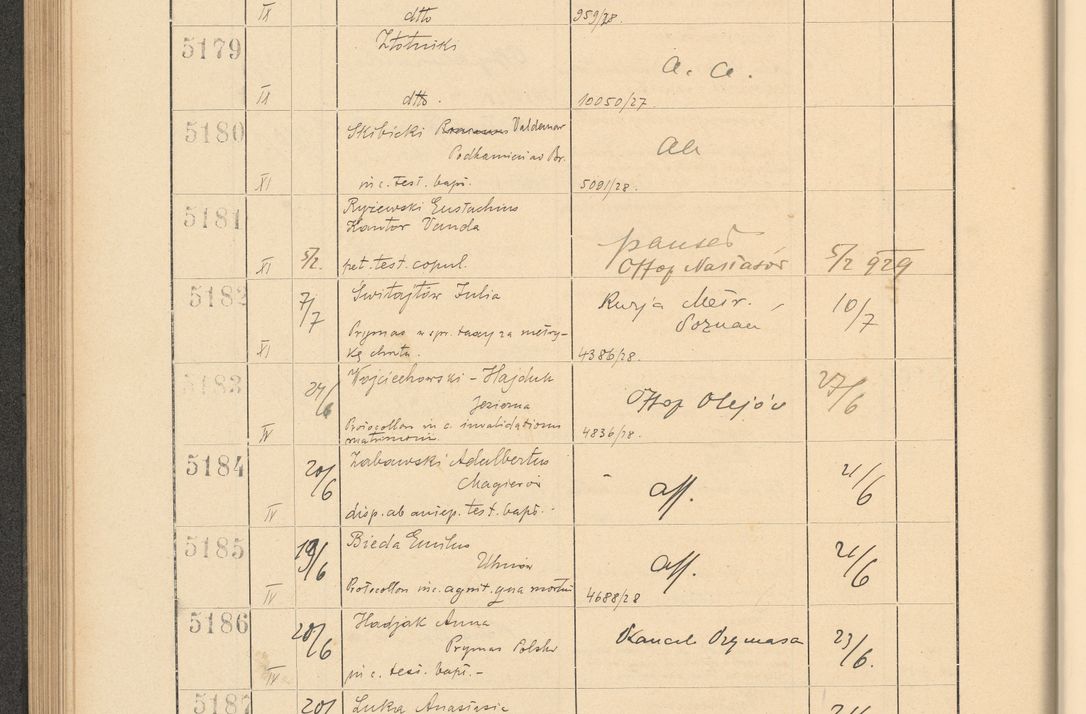 IX dtto 959/28.
5179 Złotniki
a. a.
IX dtto. 10050/27
5180 Skibicki Valdemar
Podkamień ad Br.
aa
XI in c. test. bapt. 5091/28.
5181 Ryżewski Eustachius
Kantor Vanda
XI 5/2. pet. test. copul. Offop Nastasów 5/2 929
5182 7/7 Świtajtów Julia Kurja Metr. 10/7
Poznań
Prymas w spr. taxy za metry-
XI kę chrztu. 4386/28.
5183 24/6 Wojciechowski - Hajduk 27/6
Jezierna Offop Olejów
Protocollon in c. invalidationis
IV matrimonii. 4836/28.
5184 20/6 Zabawski Adalbertus 21/6
Magierów aff.
IV disp. ab antep. test. bapt. -
5185 19/6 Bieda Emilus 21/6
Uhnów aff.
IV Protocollon in c. agnit. qua mortui 4688/28
5186 20/6 Hadzak Anna Kancel. Prymasa 23/6.
Prymas Polski
IV in c. test. bapt. -
5187 20/ Luka Anastasia 21/